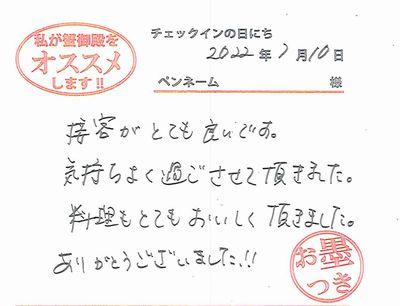 私が蟹御殿を
オススメ
します!!
チェックインの日にち
2022年7月10日
ペンネーム 様
接客がとても良いです。
気持ちよく過ごさせて頂きました。
料理もとてもおいしく頂きました。
ありがとうございました!!
お墨
つき